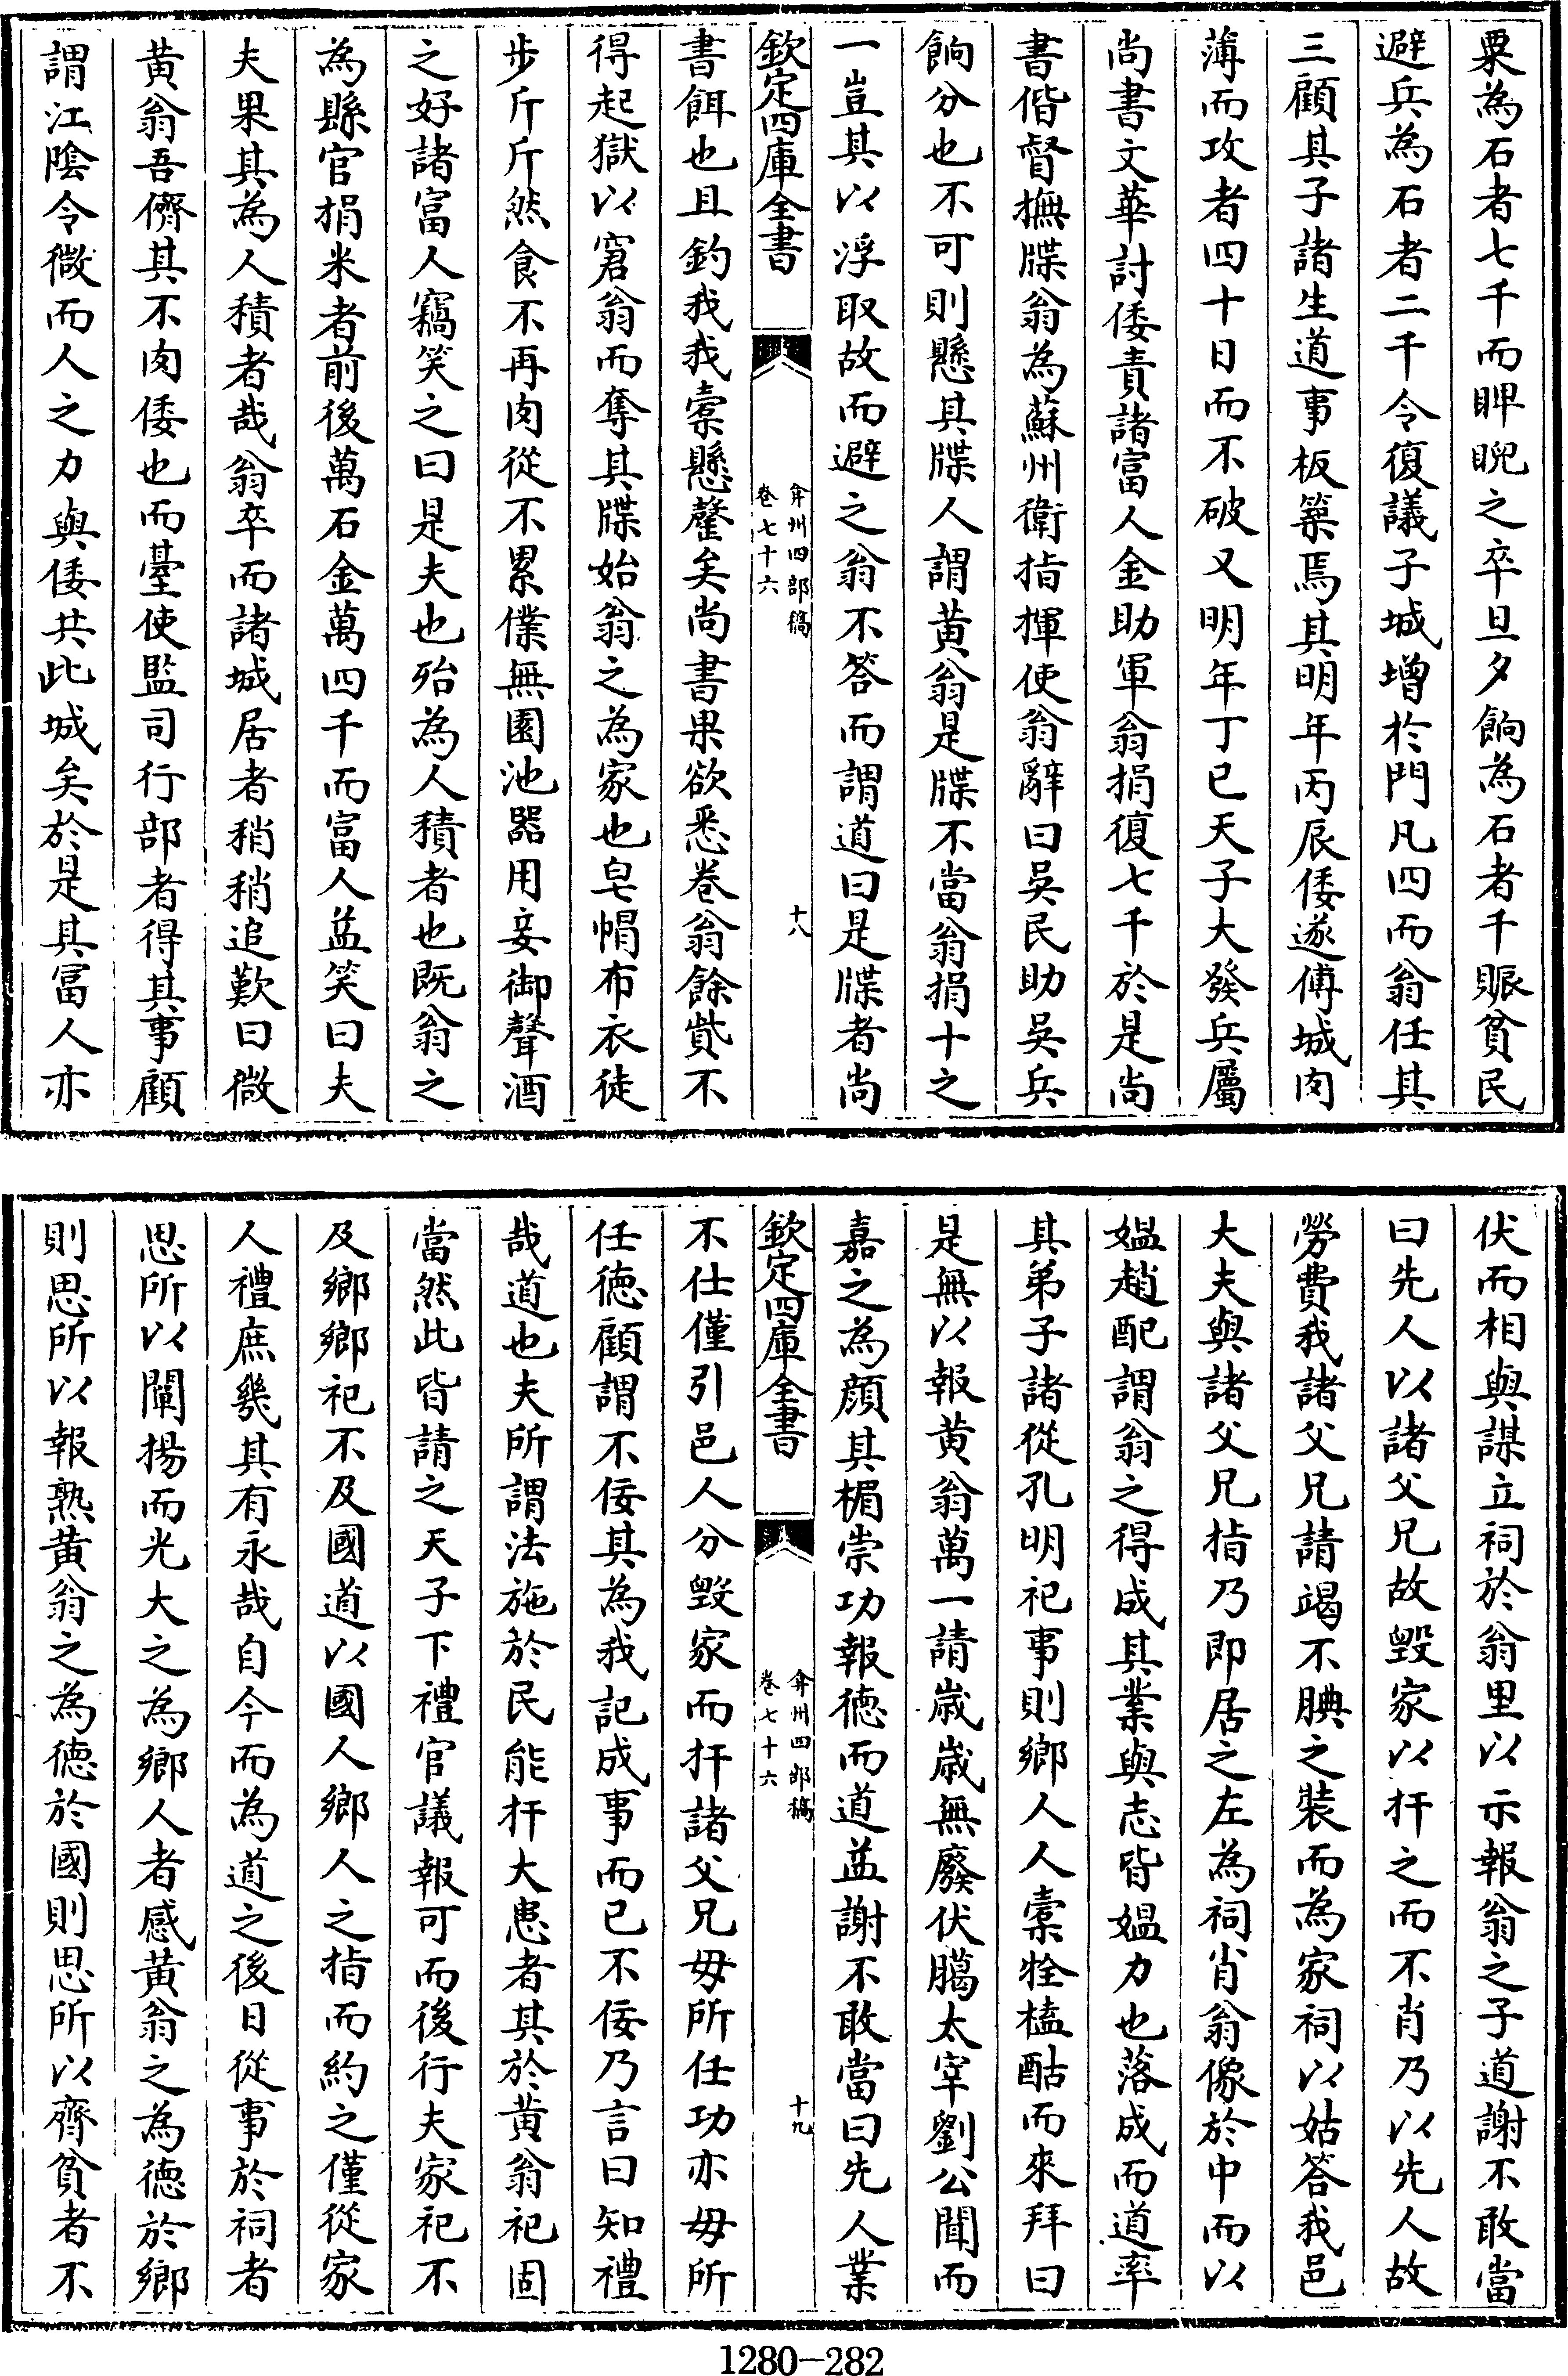 粟為石者七千而睥睨之卒旦夕餉為石者千賑貧民
避兵為石者二千令復議子城增於門凡四而翁任其
三顧其子諸生道事板築焉其明年丙辰倭遂傅城肉
薄而攻者四十日而不破又明年丁巳天子大發兵屬
尚書文華討倭責諸富人金助軍翁捐復七千於是尚
書偕督撫牒翁為蘇州衛指揮使翁辭曰吳民助吳兵
餉分也不可則懸其牒人謂黄翁是牒不當翁捐十之
一豈其以浮取故而避之翁不答而謂道曰是牒者尚
欽定四庫全書
弇州四部稿
卷七十六
十八
書餌也且釣我我橐懸罄矣尚書果欲悉卷翁餘貲不
得起獄以窘翁而奪其牒始翁之為家也皂帽布衣徒
步斤斤然食不再肉從不累僕無園池器用妾御聲酒
之好諸富人竊笑之曰是夫也殆為人積者也既翁之
為縣官捐米者前後萬石金萬四千而富人益笑曰夫
夫果其為人積者哉翁卒而諸城居者稍稍追歎曰微
黄翁吾儕其不肉倭也而臺使監司行部者得其事顧
謂江陰令微而人之力與倭共此城矣於是其富人亦
伏而相與謀立祠於翁里以示報翁之子道謝不敢當
曰先人以諸父兄故毀家以扞之而不肖乃以先人故
勞費我諸父兄請竭不腆之裝而為家祠以姑答我邑
大夫與諸父兄指乃即居之左為祠肖翁像於中而以
媼趙配謂翁之得成其業與志皆媼力也落成而道率
其弟子諸從孔明祀事則鄉人人橐牲榼酤而來拜曰
是無以報黄翁萬一請歲歲無廢伏臈太宰劉公聞而
嘉之為顔其楣崇功報德而道益謝不敢當曰先人業
欽定四庫全書
弇州四部稿
卷七十六
十九
不仕僅引邑人分毀家而扞諸父兄毋所任功亦毋所
任德顧謂不佞其為我記成事而已不佞乃言曰知禮
哉道也夫所謂法施於民能扞大患者其於黄翁祀固
當然此皆請之天子下禮官議報可而後行夫家祀不
及鄉鄉祀不及國道以國人鄉人之指而約之僅從家
人禮庶幾其有永哉自今而為道之後日從事於祠者
思所以闡揚而光大之為鄉人者感黄翁之為德於鄉
則思所以報熟黄翁之為德於國則思所以齊貧者不
1280-282